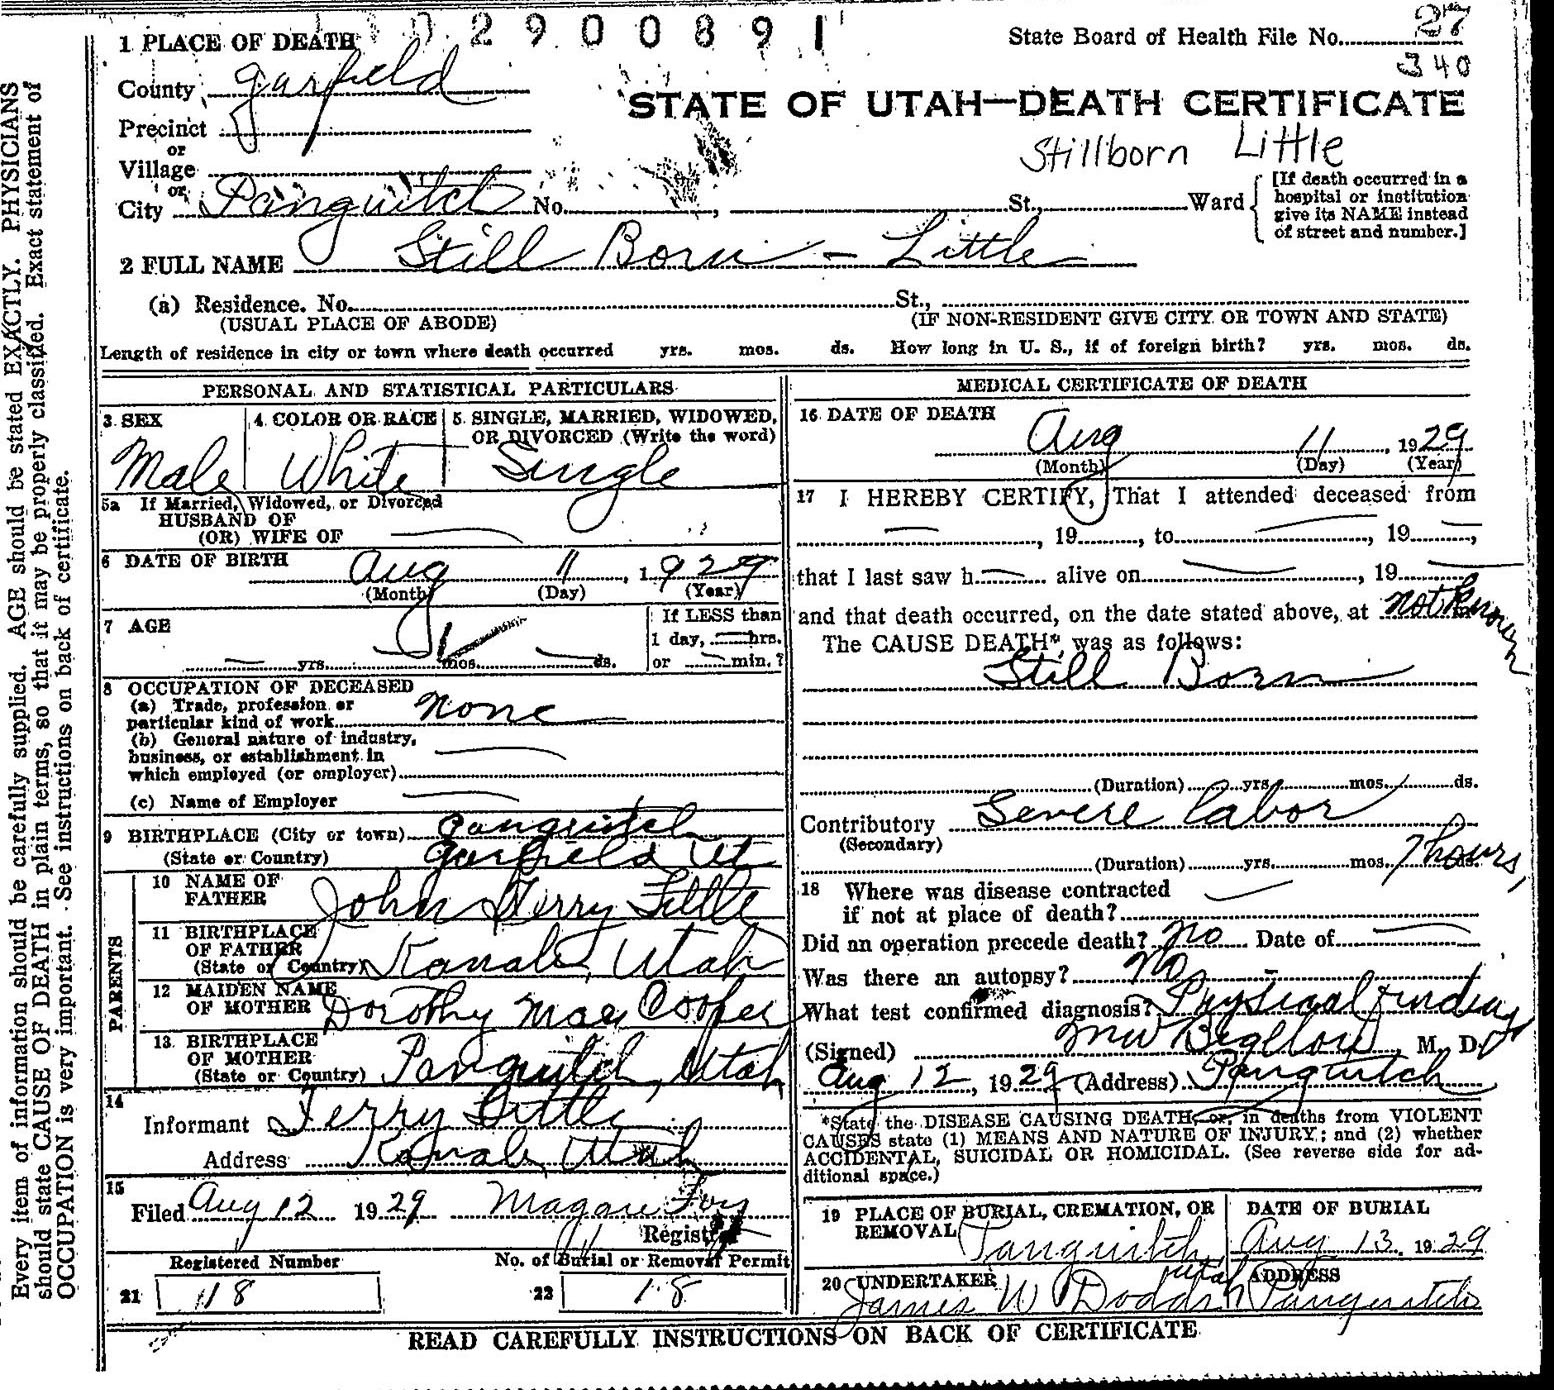 2900891
1 PLACE OF DEATH
State Board of Health File No. 27
340
County Garfield
STATE OF UTAH—DEATH CERTIFICATE
Precinct
or
Stillborn Little
Village
or
City Panguitch No. , St., Ward
[If death occurred in a
hospital or institution
give its NAME instead
of street and number.]
2 FULL NAME Still Born - Little
(a) Residence. No. St.,
(USUAL PLACE OF ABODE) (IF NON-RESIDENT GIVE CITY OR TOWN AND STATE)
Length of residence in city or town where death occurred yrs. mos. ds. How long in U. S., if of foreign birth? yrs. mos. ds.
PERSONAL AND STATISTICAL PARTICULARS
3 SEX 4 COLOR OR RACE 5 SINGLE, MARRIED, WIDOWED,
OR DIVORCED (Write the word)
Male White Single
5a If Married, Widowed, or Divorced
HUSBAND OF
(OR) WIFE OF —
6 DATE OF BIRTH Aug 11, 1929
(Month) (Day) (Year)
7 AGE — yrs. mos. — ds.
If LESS than
1 day, — hrs.
or — min.?
8 OCCUPATION OF DECEASED
(a) Trade, profession or
particular kind of work none
(b) General nature of industry,
business, or establishment in
which employed (or employer) —
(c) Name of Employer —
9 BIRTHPLACE (City or town) Panguitch
(State or Country) Garfield Ut
PARENTS
10 NAME OF
FATHER John Terry Little
11 BIRTHPLACE
OF FATHER
(State or Country) Kanab, Utah
12 MAIDEN NAME
OF MOTHER Dorothy Mae Cooper
13 BIRTHPLACE
OF MOTHER
(State or Country) Panguitch, Utah
14
Informant Terry Little
Address Kanab, Utah
15
Filed Aug 12 1929
Registrar
Registered Number No. of Burial or Removal Permit
21 18 22 18
MEDICAL CERTIFICATE OF DEATH
16 DATE OF DEATH
Aug 11, 1929
(Month) (Day) (Year)
17 I HEREBY CERTIFY, That I attended deceased from
—, 19 , to —, 19 —,
that I last saw h — alive on —, 19 —
and that death occurred, on the date stated above, at not known
The CAUSE DEATH*, was as follows:
Still Born
(Duration) yrs. mos. ds.
Contributory Severe labor
(Secondary)
(Duration) yrs. mos. 7 hours, ds.
18 Where was disease contracted
if not at place of death? —
Did an operation precede death? No Date of —
Was there an autopsy? No -
What test confirmed diagnosis? Physical findings
(Signed) MW Bigelow M. D.
Aug 12, 1929 (Address) Panguitch
*State the DISEASE CAUSING DEATH, or, in deaths from VIOLENT
CAUSES state (1) MEANS AND NATURE OF INJURY; and (2) whether
ACCIDENTAL, SUICIDAL OR HOMICIDAL. (See reverse side for ad-
ditional space.)
19 PLACE OF BURIAL, CREMATION, OR
REMOVAL Panguitch Utah
DATE OF BURIAL
Aug 13, 1929
20 UNDERTAKER ADDRESS
James W Dodds Panguitch
READ CAREFULLY INSTRUCTIONS ON BACK OF CERTIFICATE
Every item of information should be carefully supplied. AGE should be stated EXACTLY. PHYSICIANS
should state CAUSE OF DEATH in plain terms, so that it may be properly classified. Exact statement of
OCCUPATION is very important. See instructions on back of certificate.